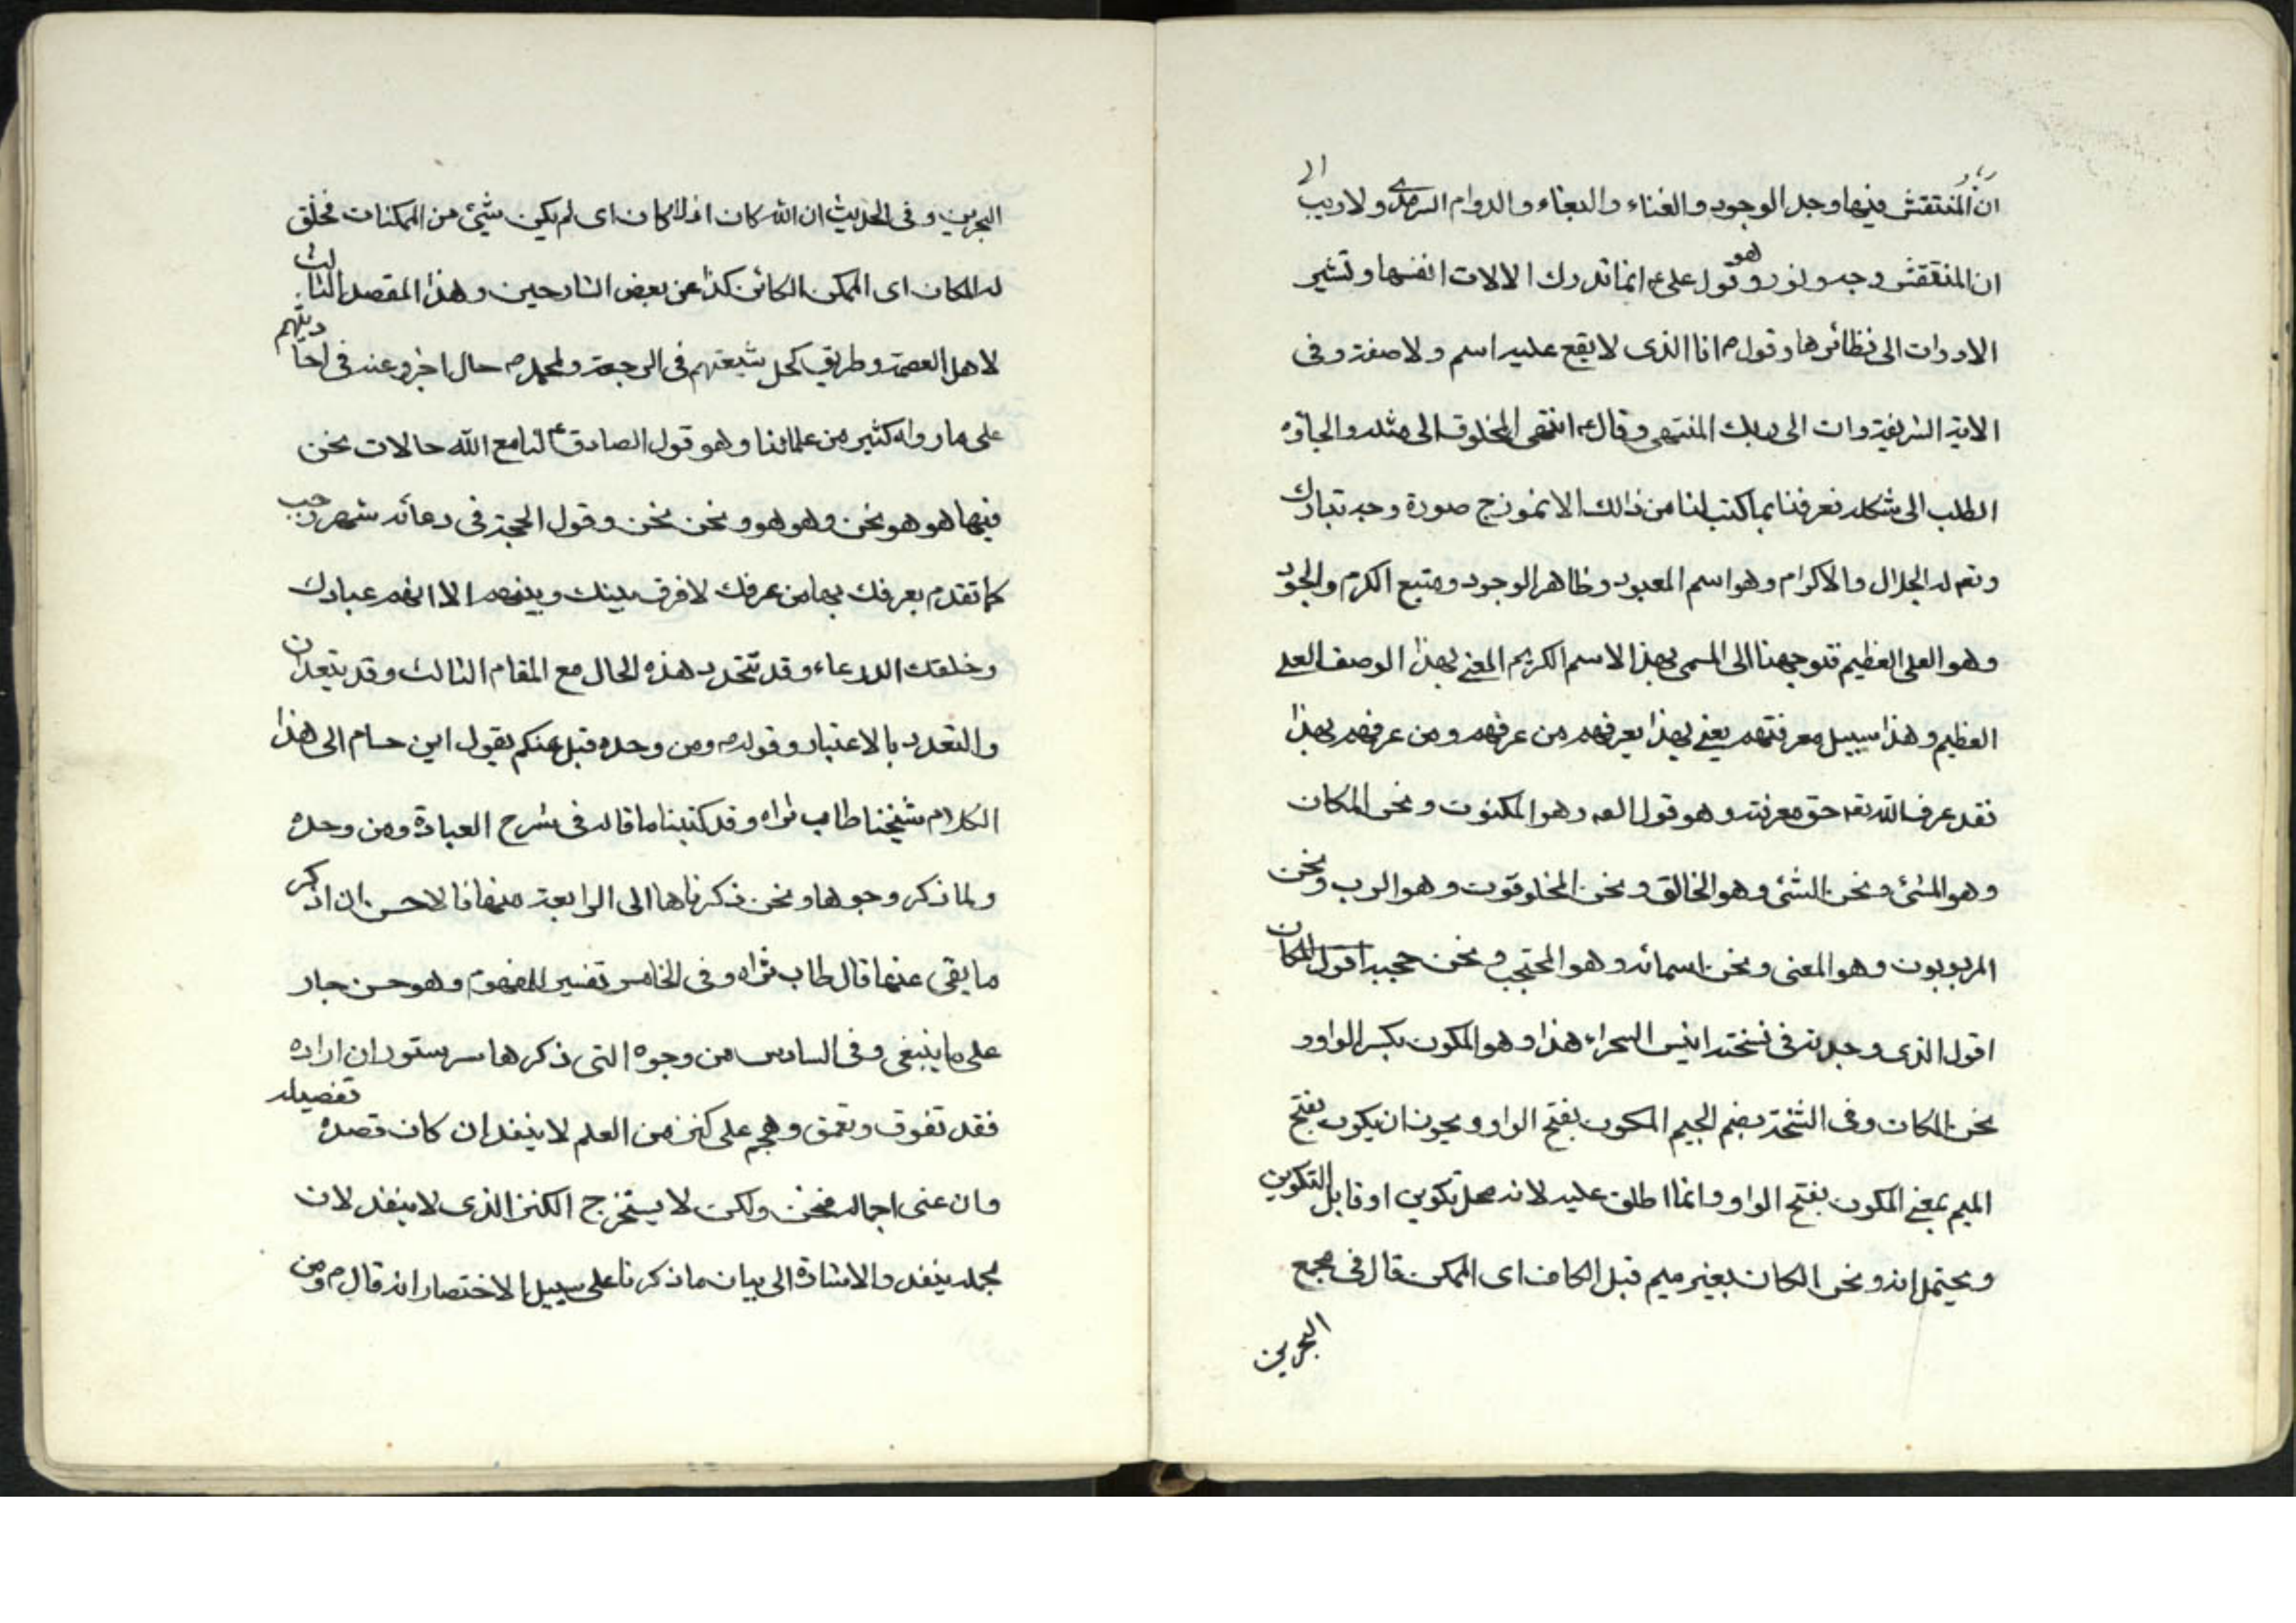 ان المنتقش فيها وجد الوجود والغناء والبقاء والدوام السرمدى ولا ريب
ان المنتقش وجه ونور وهو قول على ع انما تدرك الالات انفسها وتشير
الادوات الى نظائرها وقوله انا الذى لا يقع عليه اسم ولا صفة وفى
الاية الشريفة وان الى ربك المنتهى وقال ع انتهى المخلوق الى مثله والجاؤه
الطلب الى شكله فعرفنا بما كتب لنا من ذالك الانموذج صورة وجه تبارك
وتع له الجلال والاكرام وهو اسم المعبود وظاهر الوجود ومنبع الكرم والجود
وهو العلى العظيم فتوجهنا الى المسمى بهذا الاسم الكريم المعنى بهذا الوصف العلى
العظيم وهذا سبيل معرفتهم يعنى بهذا يعرفهم من عرفهم ومن عرفهم بهذا
فقد عرف الله تعه حق معرفته وهو قول العه وهو المكنون ونحن المكان
وهو المشئ ونحن الشئ وهو الخالق ونحن المخلوقون وهو الرب ونحن
المربوبون وهو المعنى ونحن اسمائه وهو المحتجب ونحن حجبه اقول المكان
اقول الذى وجدته فى نسخته انيس السحراء هذا وهو المكون بكسر الواو و
نحن المكان وفى الشختر بضم الجيم المكون بفتح الواو ويجوز ان يكون بفتح
الميم بمعنى المكون بفتح الواو وانما اطلق عليه لانه محل تكوين او قابل التكوين
ويحتمل انه ونحن الكان بغير ميم قبل الكاف اى الممكن قال فى مجمع
البحرين
البحرين وفى الحديث ان الله كان اذ لا كان اى لم يكن شيئ من الممكنات فخلق
له المكان اى الممكن الكائن كذا عن بعض الشارحين وهذا المقصد الثالث
لاهل العصمة وطريق لكل شيعتهم فى الرجعة ولمحمد ص حال اخر وعنه فى احاديثهم
على ما رواه كثير من علمائنا وهو قول الصادق ع لنا مع الله حالات نحن
فيها هو هو نحن وهو هو ونحن نحن وقول الحجة فى دعائه شهر رجب
كما تقدم يعرفك بها من عرفك لا فرق بينك وبينهم الا انهم عبادك
وخلقك الدعاء وقد تتحد هذه الحال مع المقام الثالث وقد يتعددان
والتعدد بالاعتبار وقوله ومن وحده قبل عنكم يقول ابن حسام الى هذا
الكلام شيخنا طاب ثراه وقد كتبنا ما قاله فى شرح العبادة ومن وحده
ولما ذكر وجوها ونحن ذكرناها الى الرابعة منها فالاحسن ان اذكر
ما بقى عنها قال طاب ثراه وفى الخامس تفسير للمفهوم وهو حسن جار
على ما ينبغى وفى السادس من وجوه التى ذكرها سر مستور ان اراده
فقد تفوق وتعمق وهجم على كنز من العلم لا ينفد ان كان قصده تفصيله
وان عنى اجماله فحسن ولكن لا يستخرج الكنز الذى لا ينفد لان
مجمله ينفد والاشارة الى بيان ما ذكرنا على سبيل الاختصار انه قال م ومن